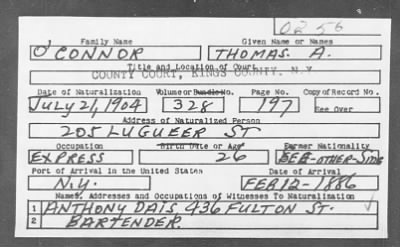 02 56
Family Name Given Name or Names
O'CONNOR THOMAS. A.
Title and Location of Court
COUNTY COURT, KINGS COUNTY, N.Y.
Date of Naturalization Volume or Bundle No. Page No. Copy of Record No.
JULY 21, 1904 328 197 See Over
Address of Naturalized Person
205 LUGUEER ST
Occupation Birth Date or Age Former Nationality
EXPRESS 26 SEE-OTHER-SIDE
Port of Arrival in the United States Date of Arrival
N.Y. FEB 12-1886
Names, Addresses and Occupations of Witnesses To Naturalization
1 ANTHONY DAIS 436 FULTON ST.
2 BARTENDER.